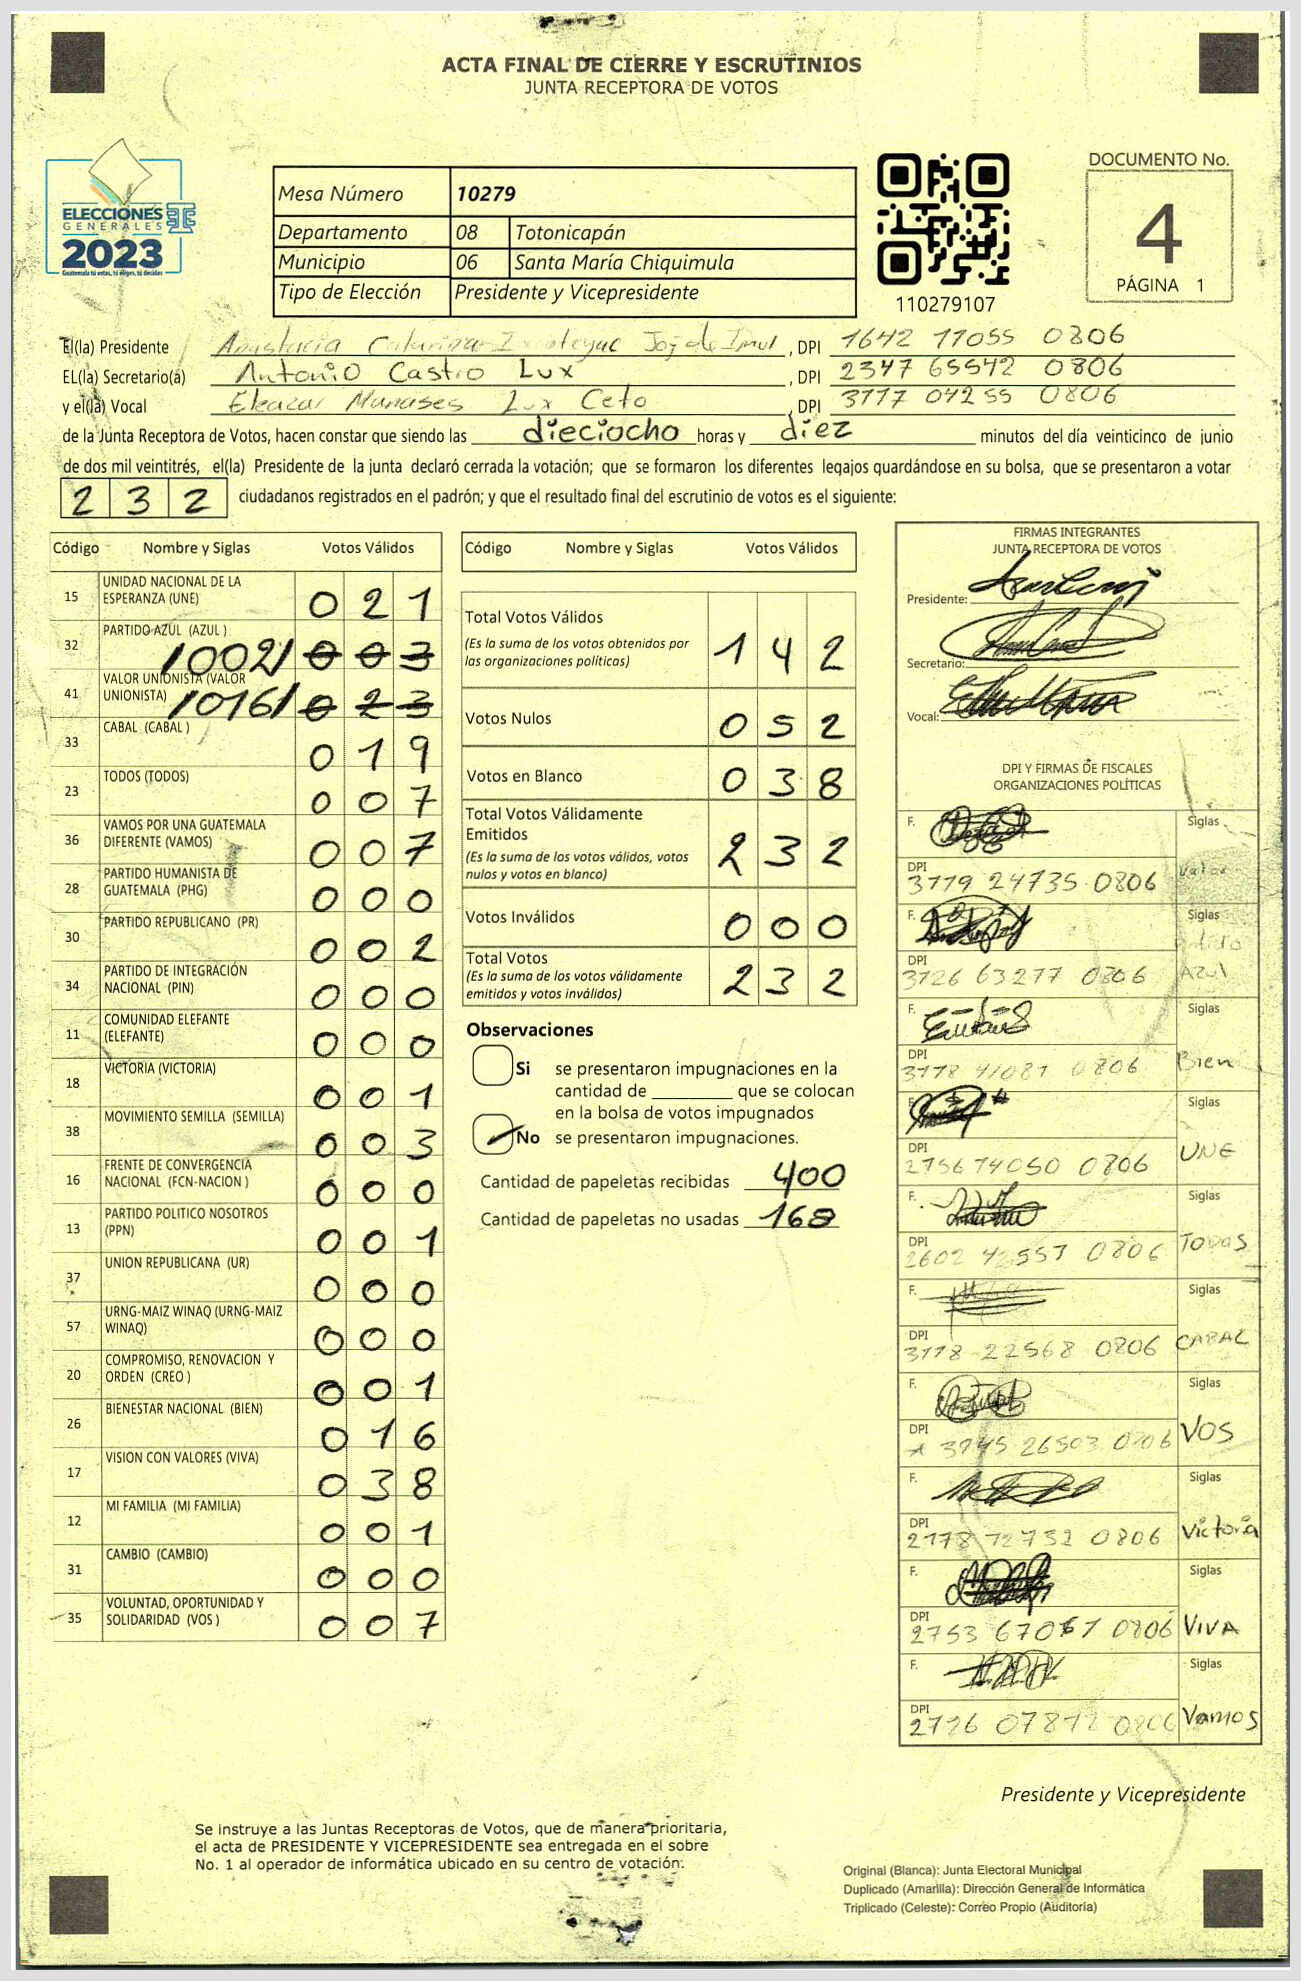 ACTA FINAL DE CIERRE Y ESCRUTINIOS
JUNTA RECEPTORA DE VOTOS
ELECCIONES
GENERALES
2023
Guatemala tú votas, tú eliges, tú decides
Mesa Número 10279
Departamento 08 Totonicapán
Municipio 06 Santa María Chiquimula
Tipo de Elección Presidente y Vicepresidente
110279107
DOCUMENTO No.
4
PÁGINA 1
El(la) Presidente Anastacia Catarina , DPI 1642 11055 0806
EL(la) Secretario(a) Antonio Castro Lux , DPI 2347 65542 0806
y el(la) Vocal Eleazar Manases Lux Ceto , DPI 3777 04255 0806
de la Junta Receptora de Votos, hacen constar que siendo las dieciocho horas y diez minutos del día veinticinco de junio
de dos mil veintitrés, el(la) Presidente de la junta declaró cerrada la votación; que se formaron los diferentes legajos guardándose en su bolsa, que se presentaron a votar
232 ciudadanos registrados en el padrón; y que el resultado final del escrutinio de votos es el siguiente:
Código Nombre y Siglas Votos Válidos
15 UNIDAD NACIONAL DE LA ESPERANZA (UNE) 0 2 1
32 PARTIDO AZUL (AZUL ) /002/ 0 0 3
41 VALOR UNIONISTA (VALOR UNIONISTA) /016/ 0 2 3
33 CABAL (CABAL ) 0 1 9
23 TODOS (TODOS) 0 0 7
36 VAMOS POR UNA GUATEMALA DIFERENTE (VAMOS) 0 0 7
28 PARTIDO HUMANISTA DE GUATEMALA (PHG) 0 0 0
30 PARTIDO REPUBLICANO (PR) 0 0 2
34 PARTIDO DE INTEGRACIÓN NACIONAL (PIN) 0 0 0
11 COMUNIDAD ELEFANTE (ELEFANTE) 0 0 0
18 VICTORIA (VICTORIA) 0 0 1
38 MOVIMIENTO SEMILLA (SEMILLA) 0 0 3
16 FRENTE DE CONVERGENCIA NACIONAL (FCN-NACION ) 0 0 0
13 PARTIDO POLITICO NOSOTROS (PPN) 0 0 1
37 UNION REPUBLICANA (UR) 0 0 0
57 URNG-MAIZ WINAQ (URNG-MAIZ WINAQ) 0 0 0
20 COMPROMISO, RENOVACION Y ORDEN (CREO ) 0 0 1
26 BIENESTAR NACIONAL (BIEN) 0 1 6
17 VISION CON VALORES (VIVA) 0 3 8
12 MI FAMILIA (MI FAMILIA) 0 0 1
31 CAMBIO (CAMBIO) 0 0 0
35 VOLUNTAD, OPORTUNIDAD Y SOLIDARIDAD (VOS ) 0 0 7
Código Nombre y Siglas Votos Válidos
Total Votos Válidos 1 4 2
(Es la suma de los votos obtenidos por
las organizaciones políticas)
Votos Nulos 0 5 2
Votos en Blanco 0 3 8
Total Votos Válidamente
Emitidos 2 3 2
(Es la suma de los votos válidos, votos
nulos y votos en blanco)
Votos Inválidos 0 0 0
Total Votos 2 3 2
(Es la suma de los votos válidamente
emitidos y votos inválidos)
Observaciones
Si se presentaron impugnaciones en la
cantidad de ________ que se colocan
en la bolsa de votos impugnados
No se presentaron impugnaciones.
Cantidad de papeletas recibidas 400
Cantidad de papeletas no usadas 168
FIRMAS INTEGRANTES
JUNTA RECEPTORA DE VOTOS
Presidente:
Secretario:
Vocal:
DPI Y FIRMAS DE FISCALES
ORGANIZACIONES POLÍTICAS
F. Siglas
DPI 3779 24735 0806 Valor
F. Siglas
DPI 3726 63277 0806 Azul
F. Siglas
DPI 3778 41087 0806 Bien
F. Siglas
DPI 2756 74050 0806 UNE
F. Siglas
DPI 2602 42553 0806 Todos
F. Siglas
DPI 3778 22568 0806 CABAL
F. Siglas
DPI 3745 26503 0806 VOS
F. Siglas
DPI 2778 72732 0806 Victoria
F. Siglas
DPI 2753 67061 0806 VIVA
F. Siglas
DPI 2726 07872 0806 Vamos
Presidente y Vicepresidente
Se instruye a las Juntas Receptoras de Votos, que de manera prioritaria,
el acta de PRESIDENTE Y VICEPRESIDENTE sea entregada en el sobre
No. 1 al operador de informática ubicado en su centro de votación.
Original (Blanca): Junta Electoral Municipal
Duplicado (Amarilla): Dirección General de Informática
Triplicado (Celeste): Correo Propio (Auditoría)